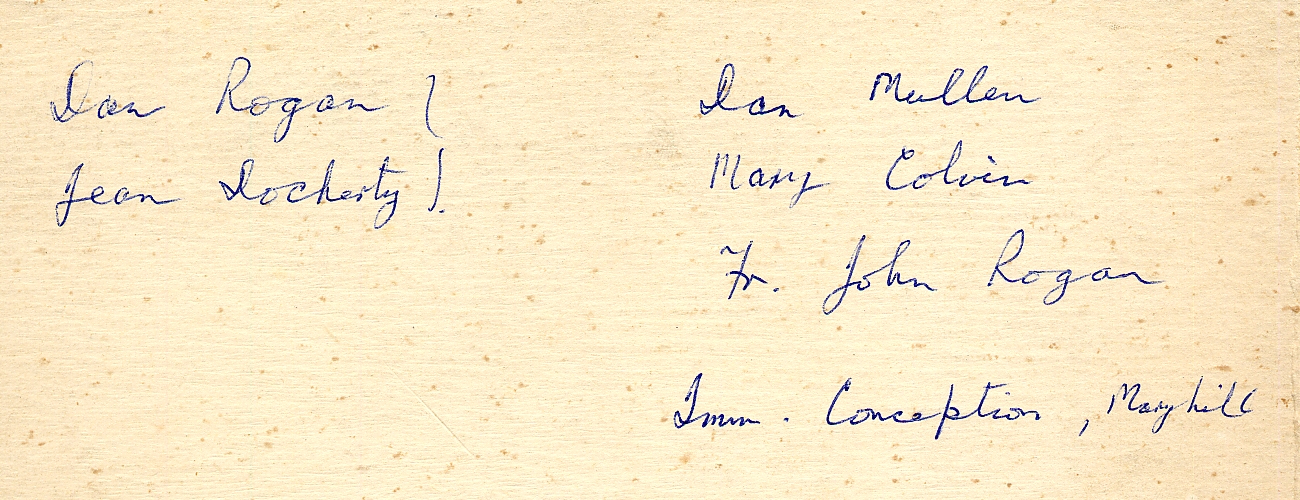 Dan Rogan
Jean Docherty
Dan Mullen
Mary Colvin
Fr. John Rogan
Imm. Conception, Maryhill